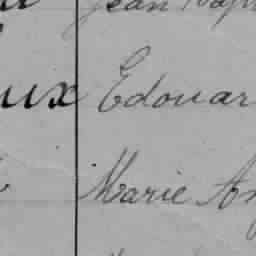 Jean Bap
ux Edouar
Marie An